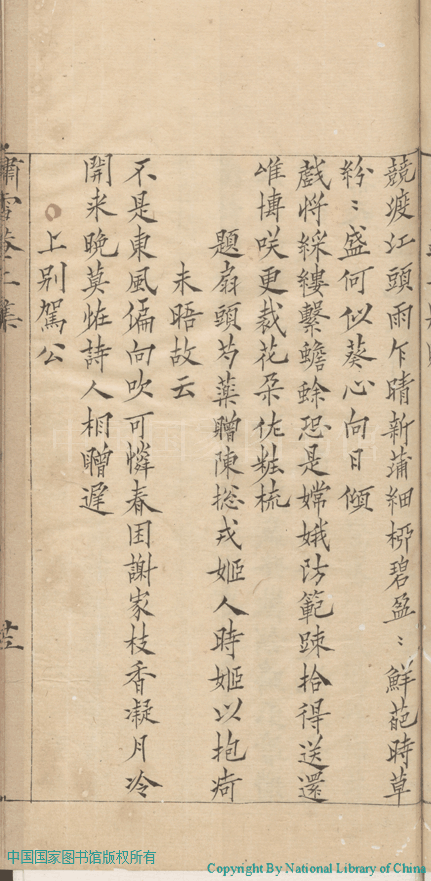 競渡江頭雨乍晴新蒲細桺碧盈〻鮮葩時草
紛〻盛何似葵心向日傾
戲將綵縷繫蟾蜍恐是嫦娥防範踈拾得送還
唯博咲更裁花朵佐粧梳
題扇頭芍藥贈陳総戎姬人時姬以抱疴
未晤故云
不是東風偏向吹可憐春困謝家枝香凝月冷
開来晚莫恠詩人相贈遲
上别駕公
嘯雪菴二集
中国国家图书馆版权所有
Copyright By National Library of China